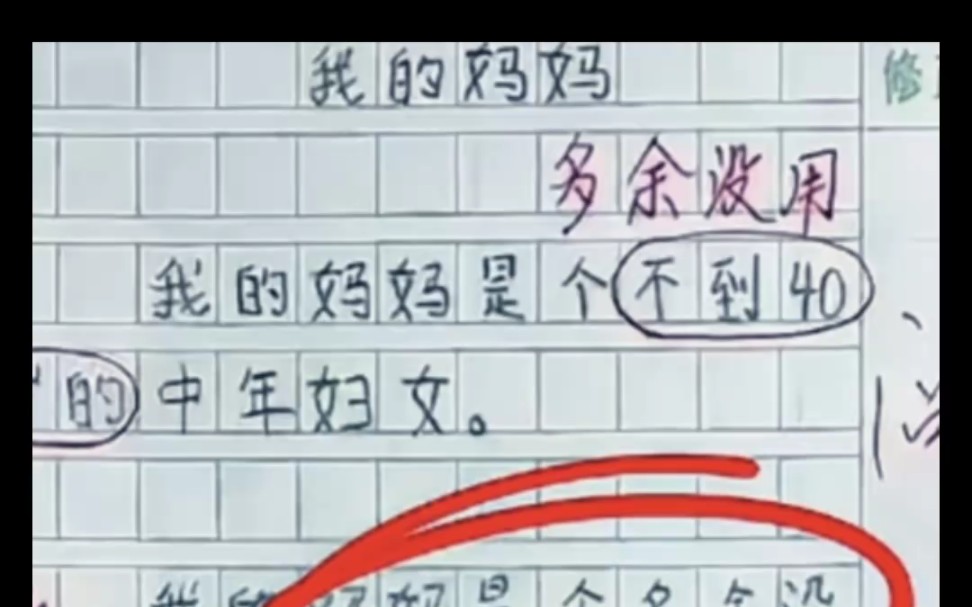 我的妈妈
修
多余没用
我的妈妈是个不到40
的中年妇女。
妈是个多余没